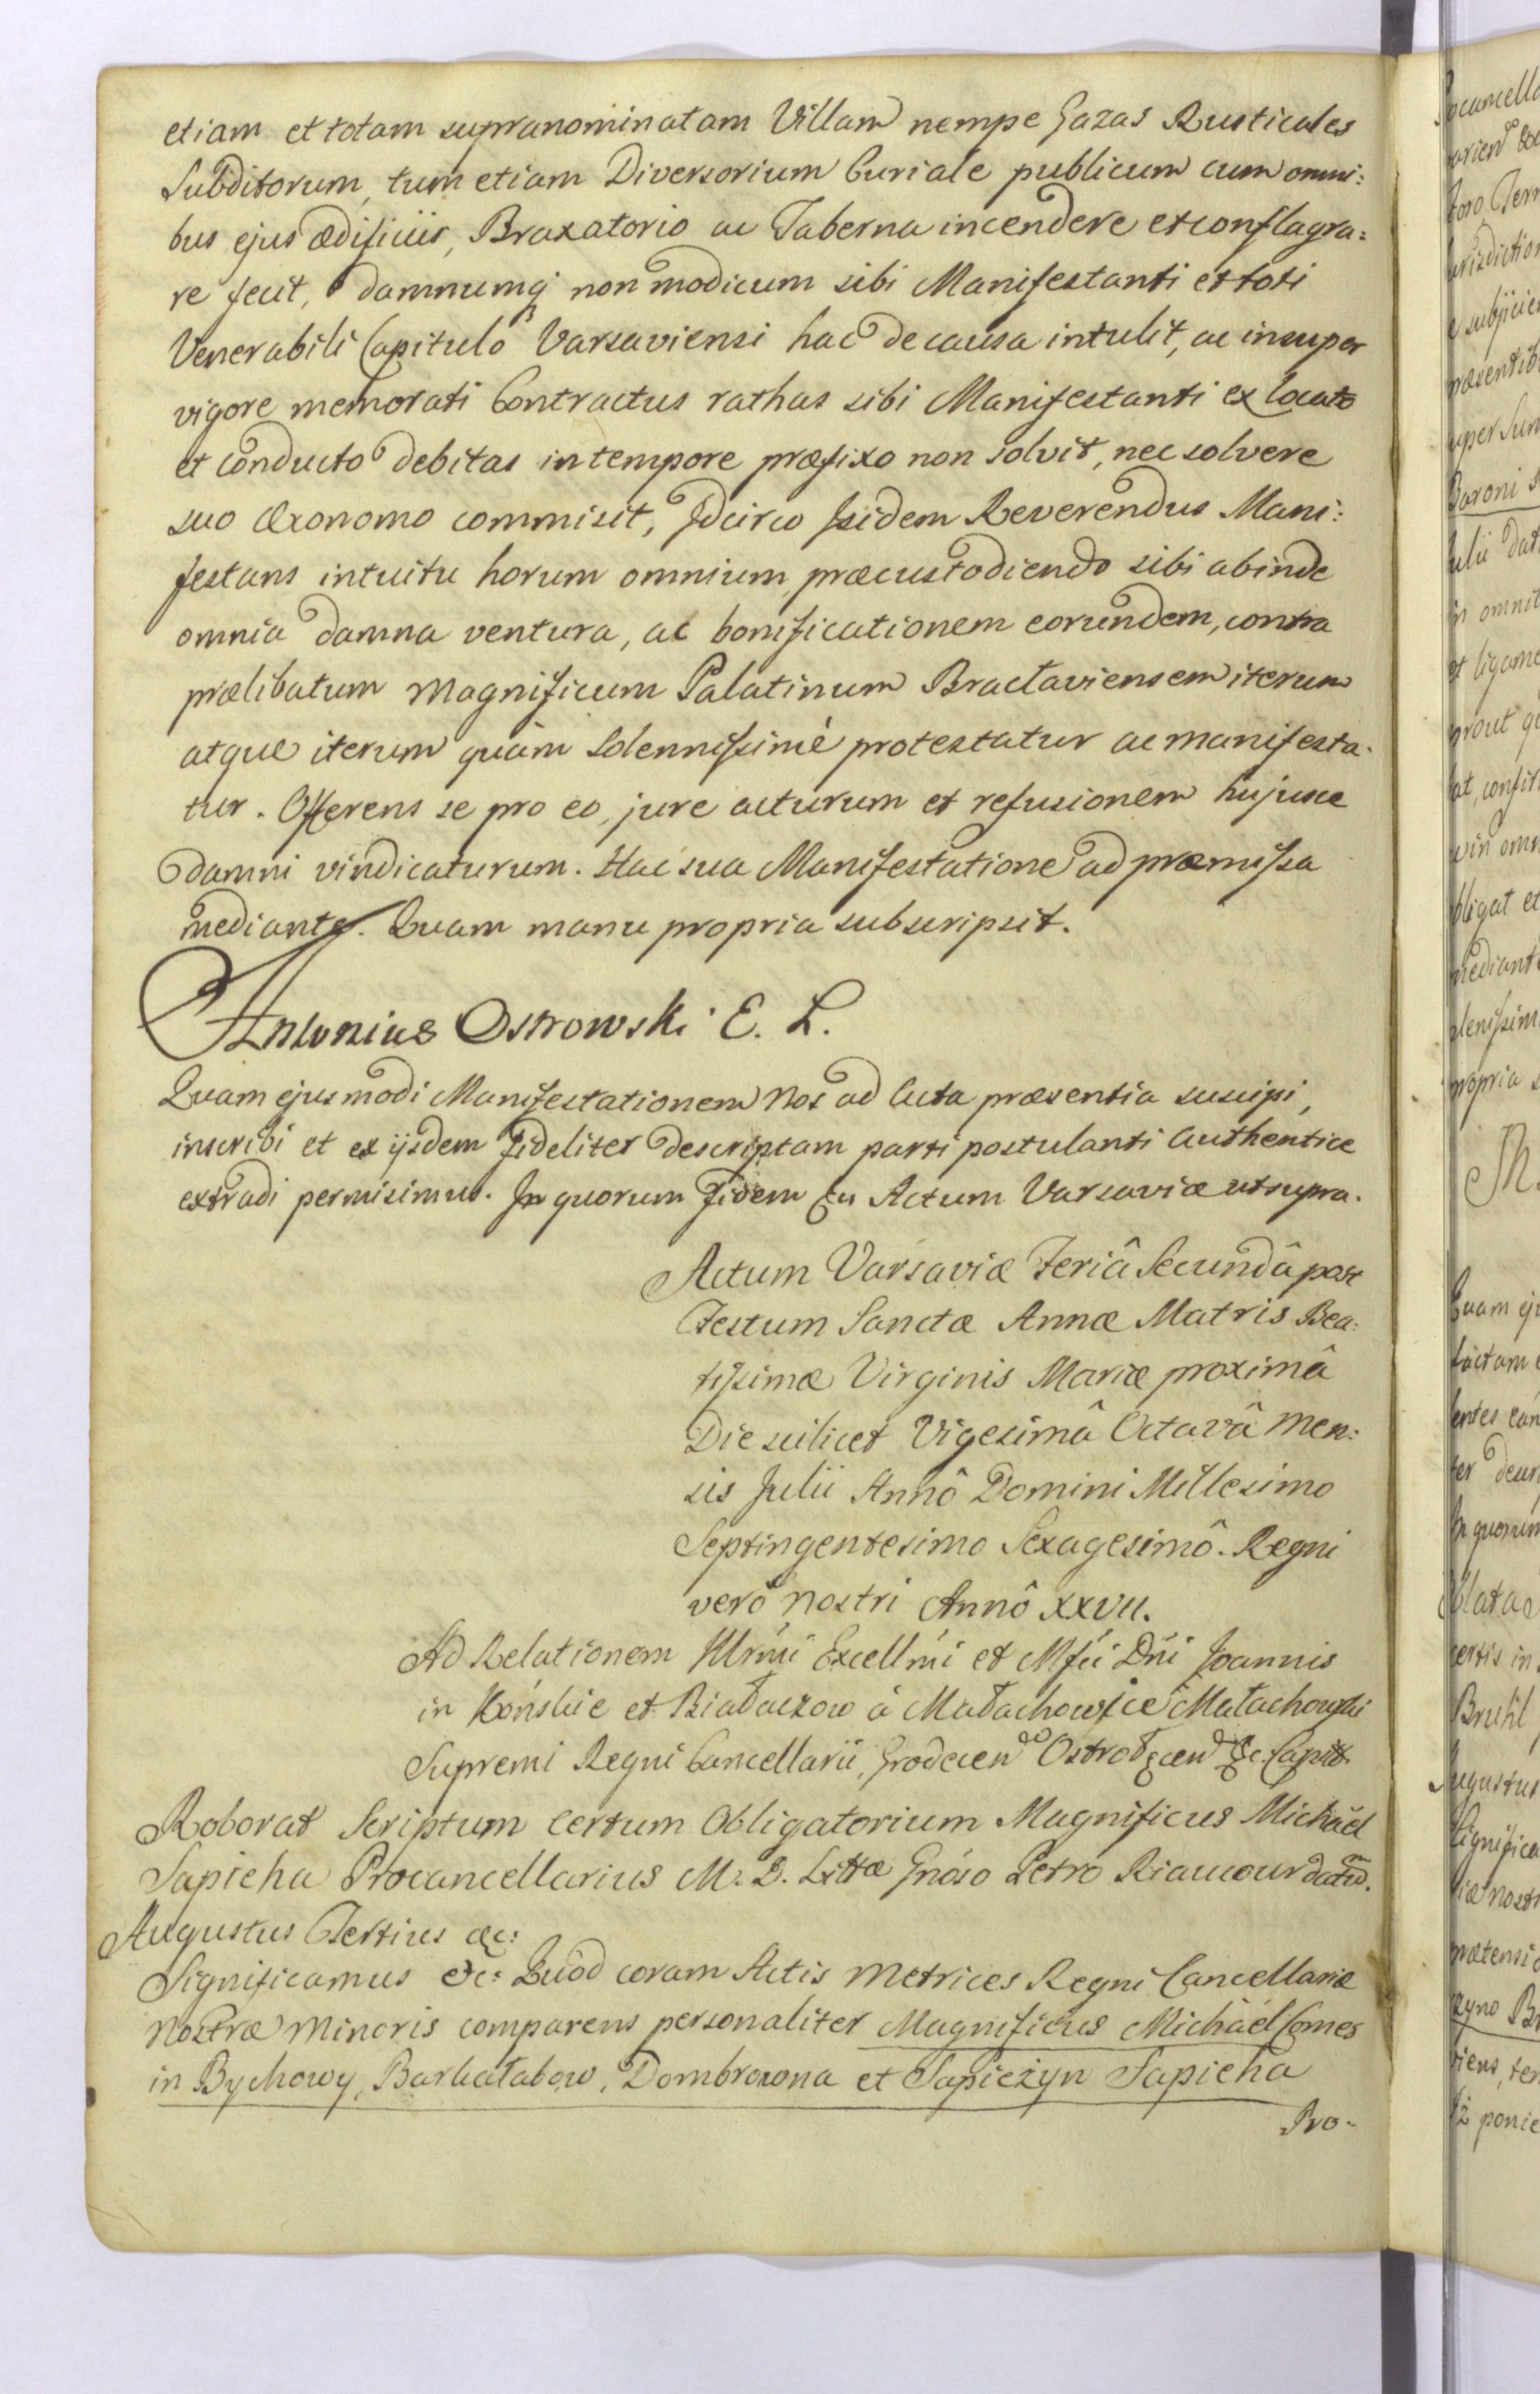 etiam et totam supranominatam Villam nempe Gazas Rusticales
Subditorum, tum etiam Diversorium Curiale publicum cum omni:
bus ejus ædificiis, Braxatorio ac Taberna incendere et conflagra:
re fecit, damnumq non modicum sibi Manifestanti et toti
Venerabili Capitulo Varsaviensi hac de causa intulit, ac insuper
vigore memorati Contractus rathas sibi Manifestanti ex locato
et conducto debitas in tempore præfixo non solvit, nec solvere
suo Œconomo commisit, Idcirco Isidem Reverendus Mani:
festans intuitu horum omnium præcustodiendo sibi abinde
omnia damna ventura, ac bonificationem eorundem, contra
prælibatum Magnificum Palatinum Braclaviensem iterum
atque iterum quàm Solennissimè protestatur ac manifesta-
tur. Offerens se pro eo, jure acturum et refusionem hujusce
damni vindicaturum. Hac sua Manifestatione ad præmissa
mediante. Quam manu propria subscripsit.
Antonius Ostrowski E. L.
Quam ejusmodi Manifestationem Nos ad Acta præsentia suscipi,
inscribi et ex ijsdem fideliter descriptam parti postulanti Authentice
extradi permisimus. In quorum Fidem &c Actum Varsaviæ ut supra.
Actum Varsaviæ Feriâ Secundâ post
Festum Sanctæ Annæ Matris Bea:
tissimæ Virginis Mariæ proximâ
Die scilicet Vigesimâ Octavâ Men:
sis Julii Annô Domini Millesimo
Septingentesimo Sexagesimô. Regni
verô Nostri Annô XXVII.
Ad Relationem Illrmi Excellmi et Mfci Dni Joannis
in Końskie et Białaczow à Małachowice Małachowski
Supremi Regni Cancellarii, Grodecen Ostrołęcen &c. Captt
Roborat Scriptum certum Obligatorium Magnificus Michäel
Sapieha Procancellarius M. D. Littæ Gnoso Petro Riaucour datum.
Augustus Tertius &c:
Significamus &c: Quod coram Actis Metrices Regni Cancellariæ
Nostræ Minoris comparens personaliter Magnificus Michäel Comes
in Bychowy, Barhałabow, Dombrowna et Sapieżyn Sapieha
Pro-